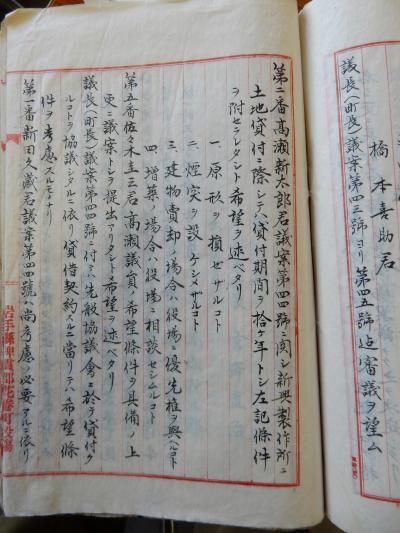 橋本喜助君
議長(町長)議案第四三號ヨリ第四五號迄審議ヲ望ム
第二番高瀬新太郎君議案第四四號ニ関シ新興製作所ニ
土地貸付ニ際シテハ貸付期間ヲ拾ケ年トシ左記條件
ヲ附セラレタシト希望ヲ述ベタリ
一、原形ヲ損セザルコト
二、煙突ヲ設ケシメザルコト
三、建物賣却ノ場合ハ役場ニ優先権ヲ與ヘルコト
四、増築ノ場合ハ役場ニ相談セシムルコト
第五番佐々木圭三君高瀬議員ノ希望條件ヲ具備ノ上
更ニ議案トシテ提出アリタシト希望ヲ述ベタリ
議長(町長)議案第四四號ニ付テハ先般協議會ニ於テ貸付ク
ルコトヲ協議シタルニ依リ貸借契約スルニ當リテハ希望條
件ヲ考慮スルモノナリ
第一番新田久蔵君議案第四四號ハ尚考慮ノ必要アルニ依リ
岩手縣稗貫郡花巻町役場